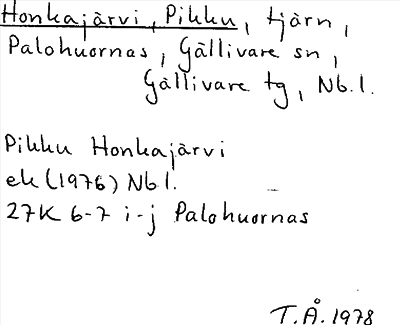 Honkajärvi, Pikku, tjärn,
Palohuornas, Gällivare sn,
Gällivare tg, Nb.l.
Pikku Honkajärvi
ek (1976) Nbl.
27K 6-7 i-j Palohuornas
T.Å. 1978